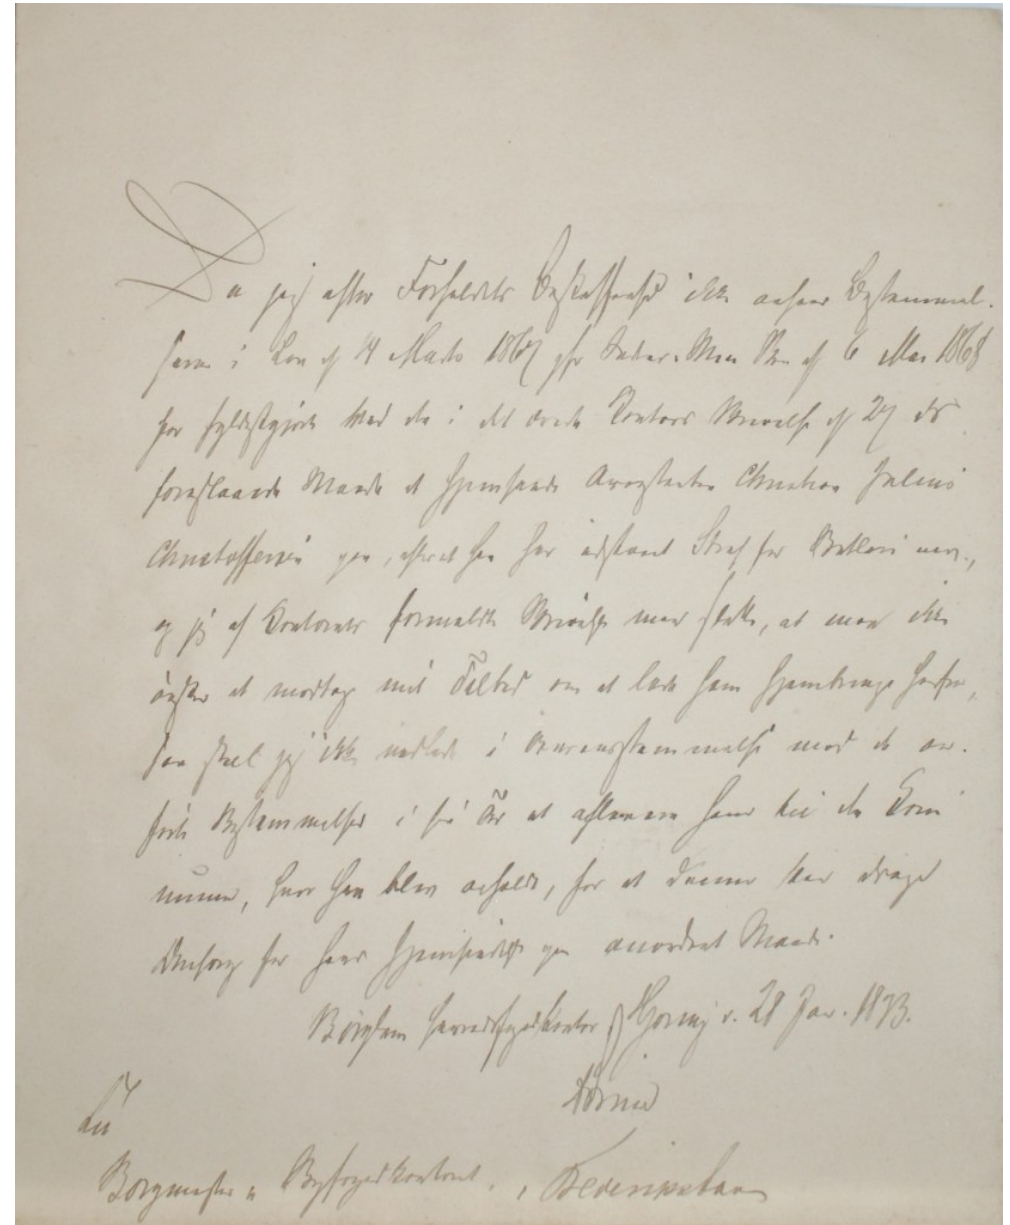 Da jeg efter Forholdets Beskaffenhed ikke anseer Bestemmel-
serne i Lov af 14 Marts 1867 jfr Indenr. Min Skr. af 6 Mai 1868
for fyldestgjort ved den i det ærede Kontors Skrivelse af 27 ds
foreslaaede Maade at hjemsende Arrestanten Christian Julius
Christoffersen paa, efterat han har udstaaet Straf for Betleri
og jeg af Kontorets formeldte Skrivelse maa slutte, at man ikke
ønsker at modtage mit Tilbud om at lade ham hjembringe herfra,
saa skal jeg ikke undlade i Overensstemmelse med de an-
førte Bestemmelser i sin Tid at aflevere ham til den Kom
mune, hvor han blev anholdt, for at denne kan drage
Omsorg for hans Hjemsendelse paa anordnet Maade.
Børglum Herredsfogedkontor Hjøring d. 28 Jan. 1873.
Til
Borgmester & Byfogedkontoret i Frederikshavn